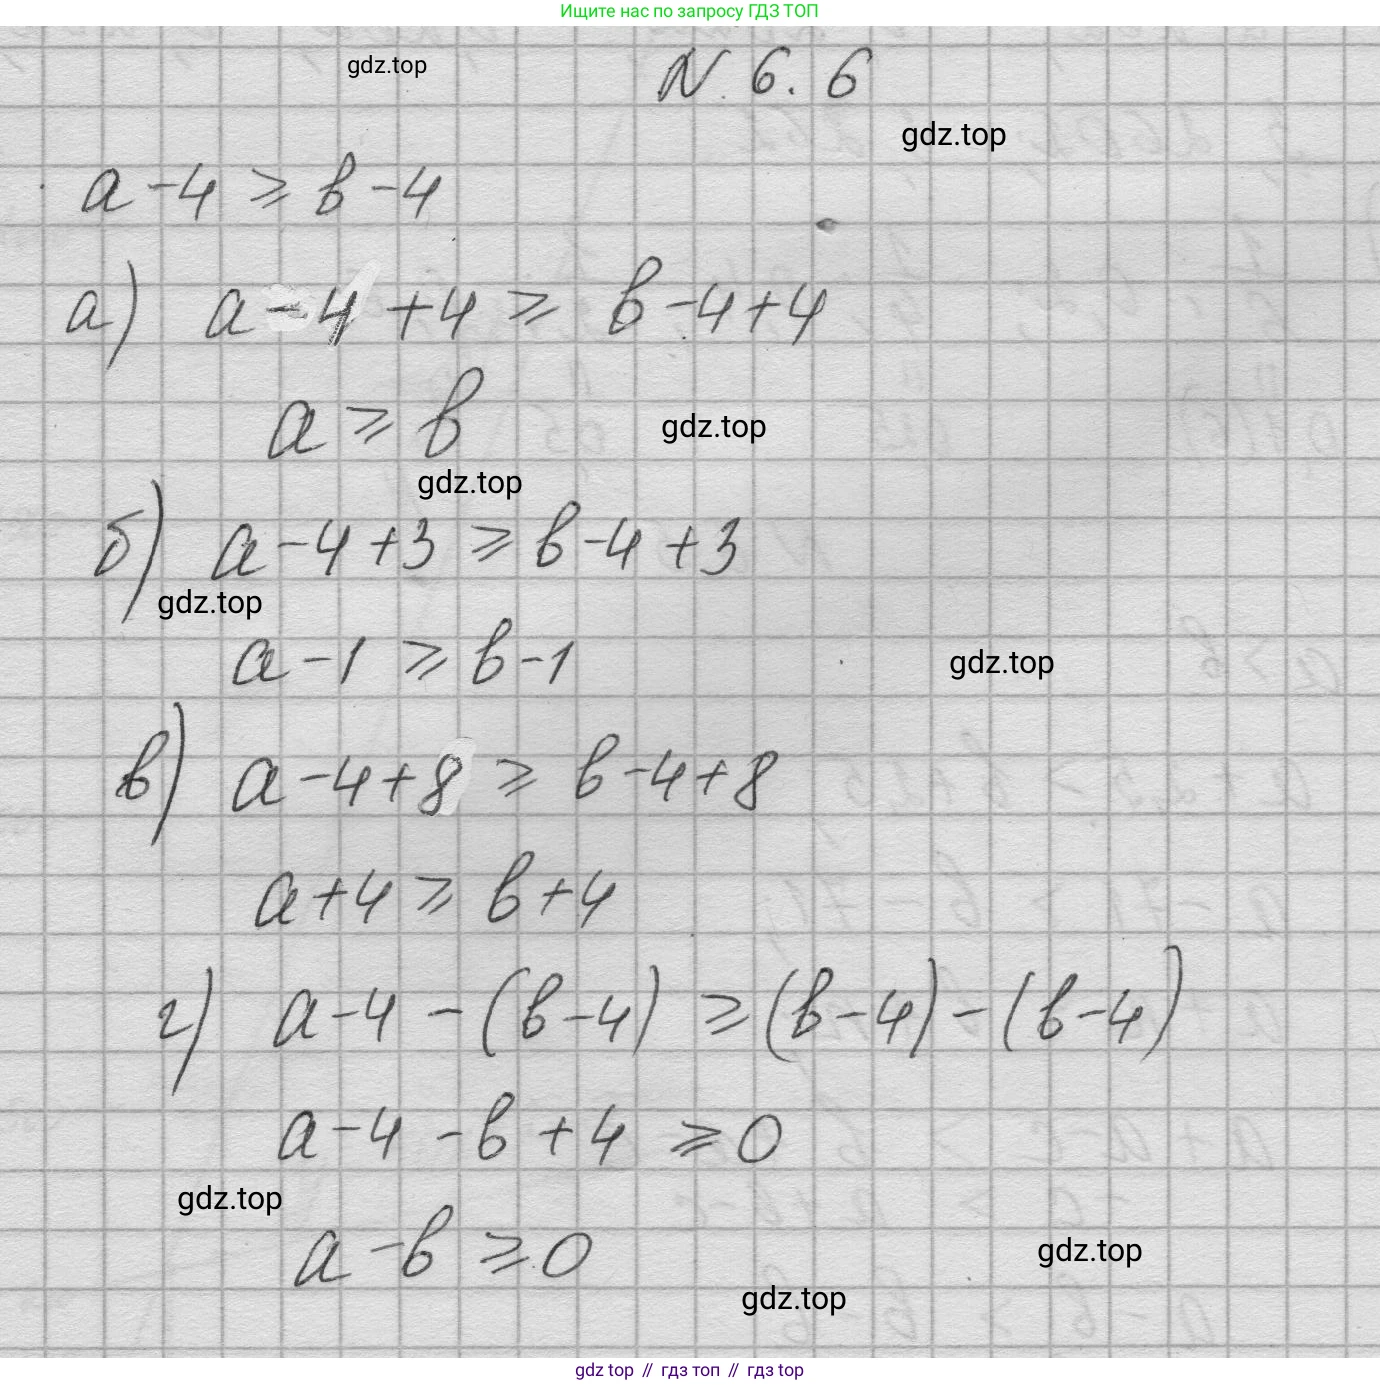 Ищите нас по запросу ГДЗ ТОП
gdz.top
N 6.6
gdz.top
a - 4 ⩾ в - 4
а) a - 4 + 4 ⩾ в - 4 + 4
a ⩾ в
gdz.top
gdz.top
б) a - 4 + 3 ⩾ в - 4 + 3
gdz.top
a - 1 ⩾ в - 1
gdz.top
в) a - 4 + 8 ⩾ в - 4 + 8
a + 4 ⩾ в + 4
г) a - 4 - (в - 4) ⩾ (в - 4) - (в - 4)
a - 4 - в + 4 ⩾ 0
gdz.top
a - в ⩾ 0
gdz.top
gdz.top
gdz top // гдз топ // гдз top